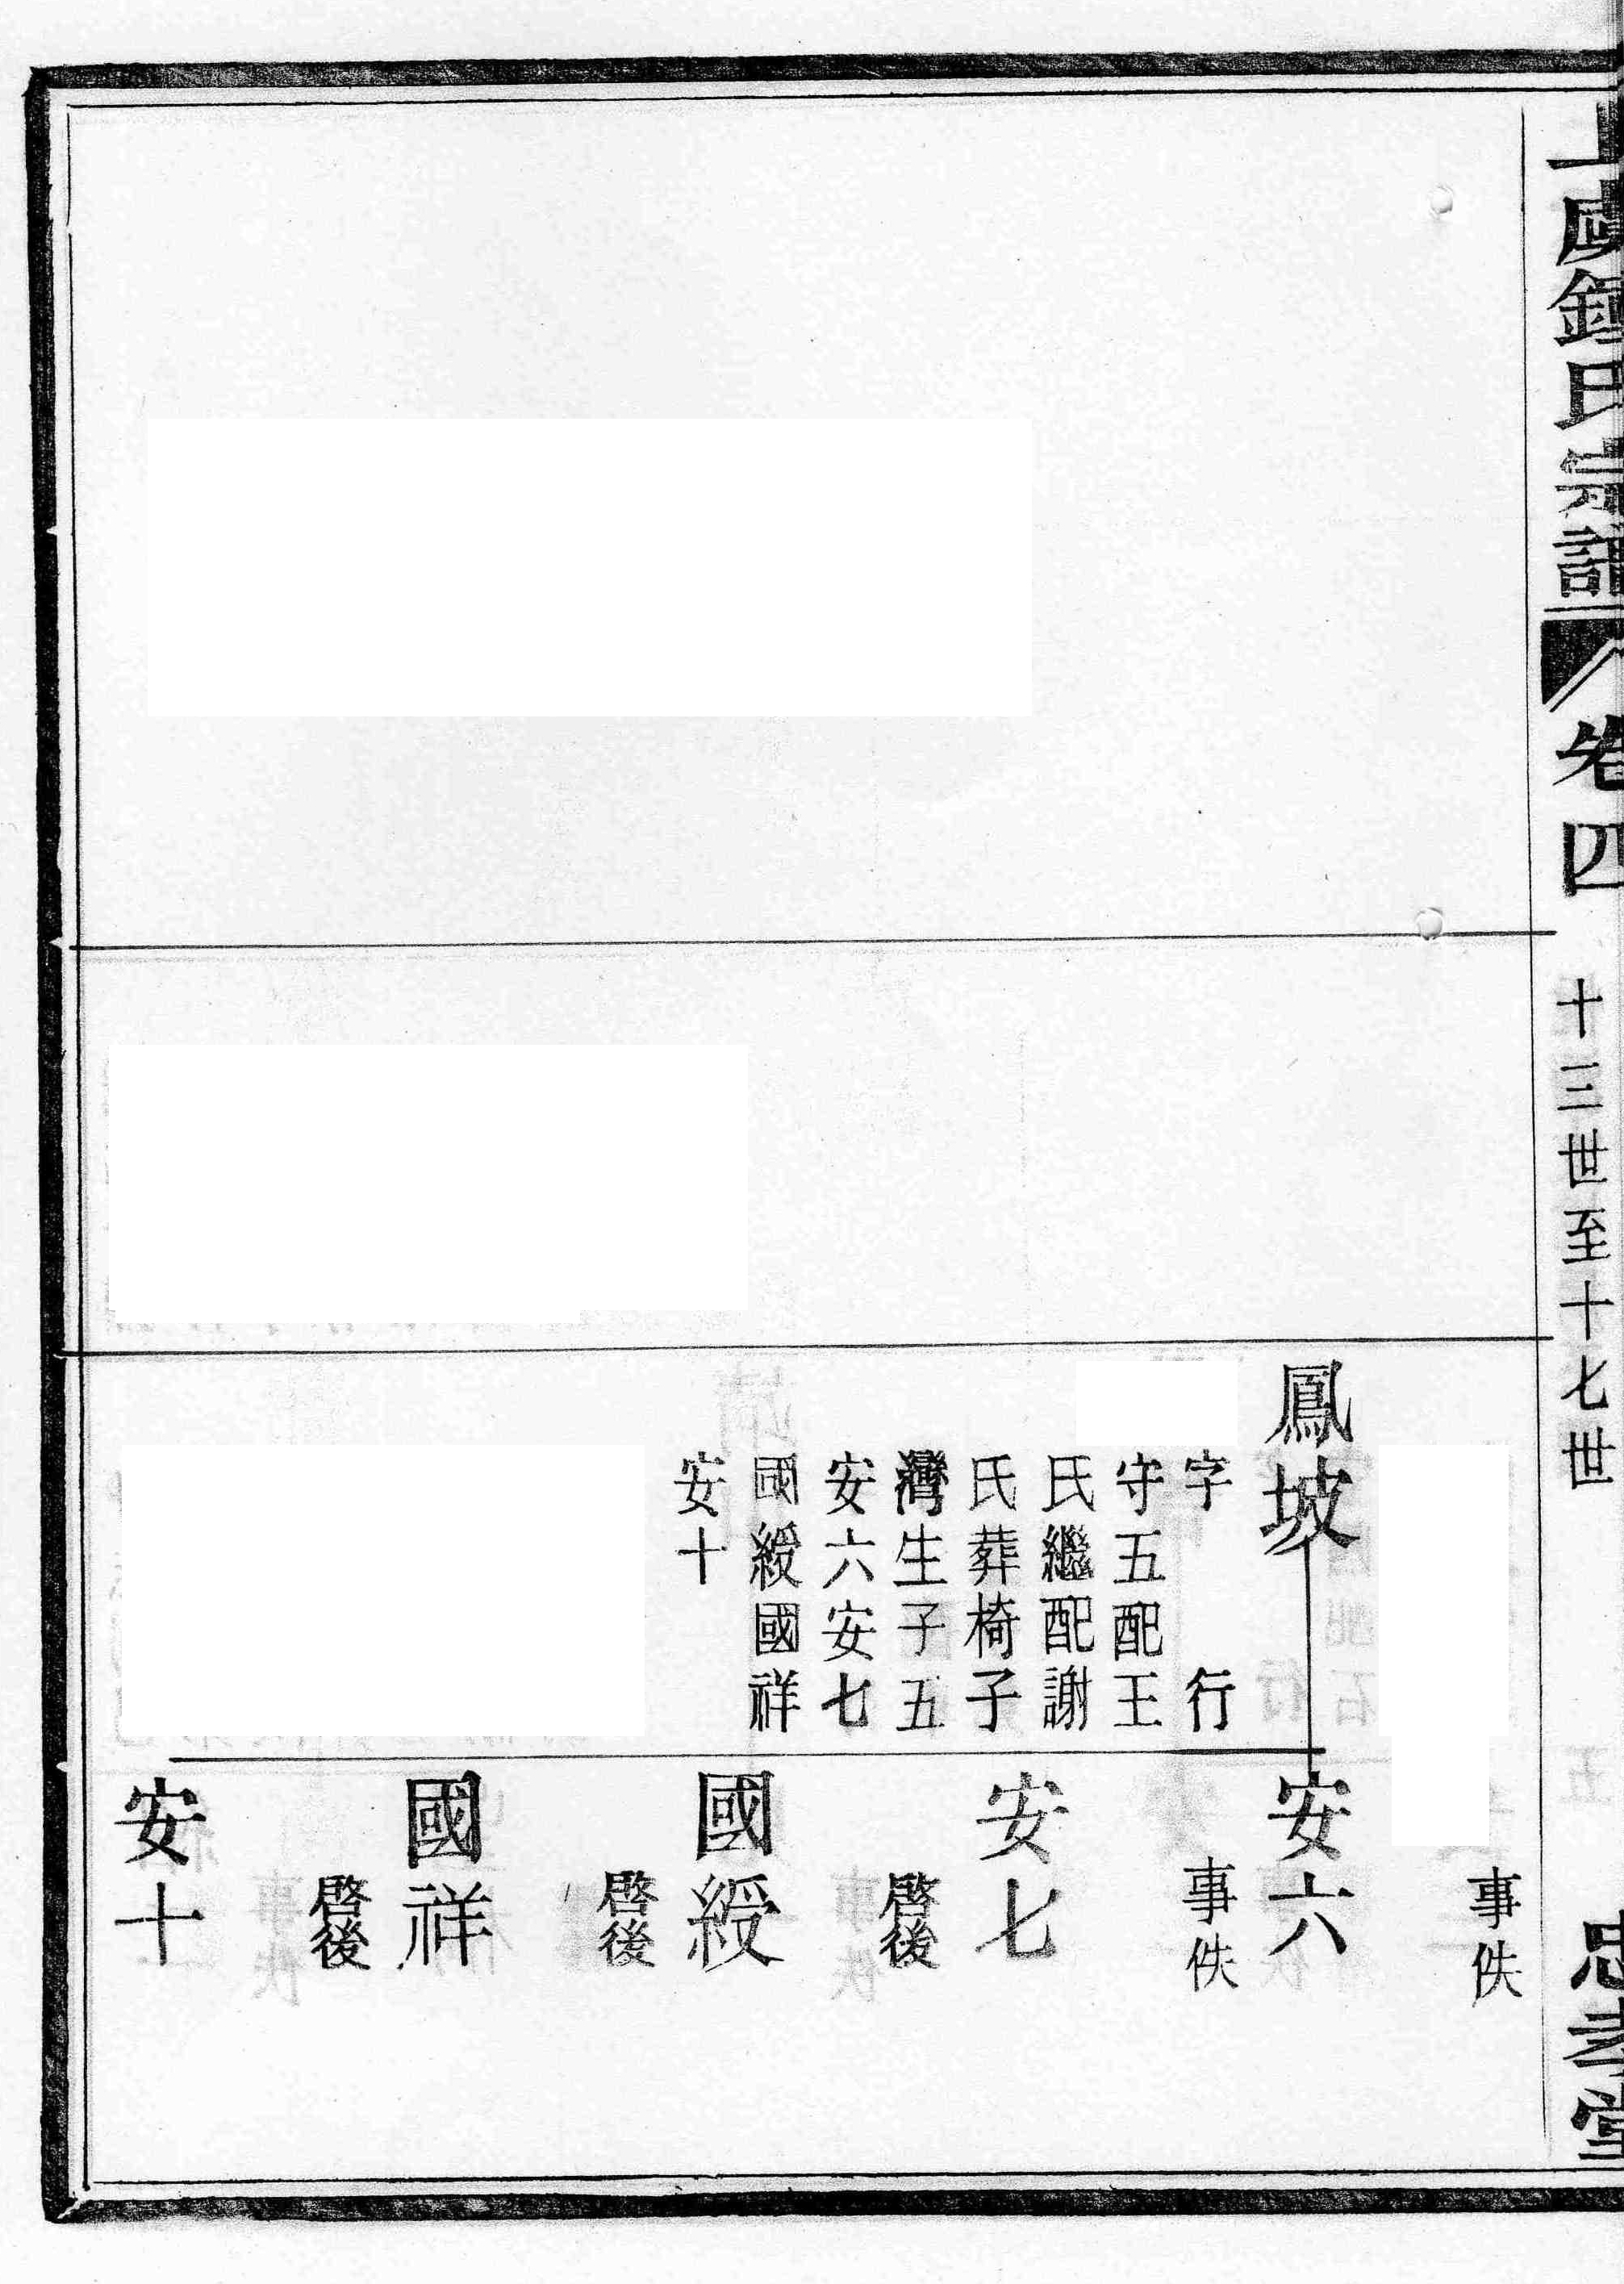 上虞鍾氏宗譜
卷四
十三世至十七世
忠孝堂
鳳坡
字 行
守五配王
氏繼配謝
氏葬椅子
灣生子五
安六安七
國綬國祥
安十
事佚
安六
事佚
安七
啓後
國綬
啓後
國祥
啓後
安十